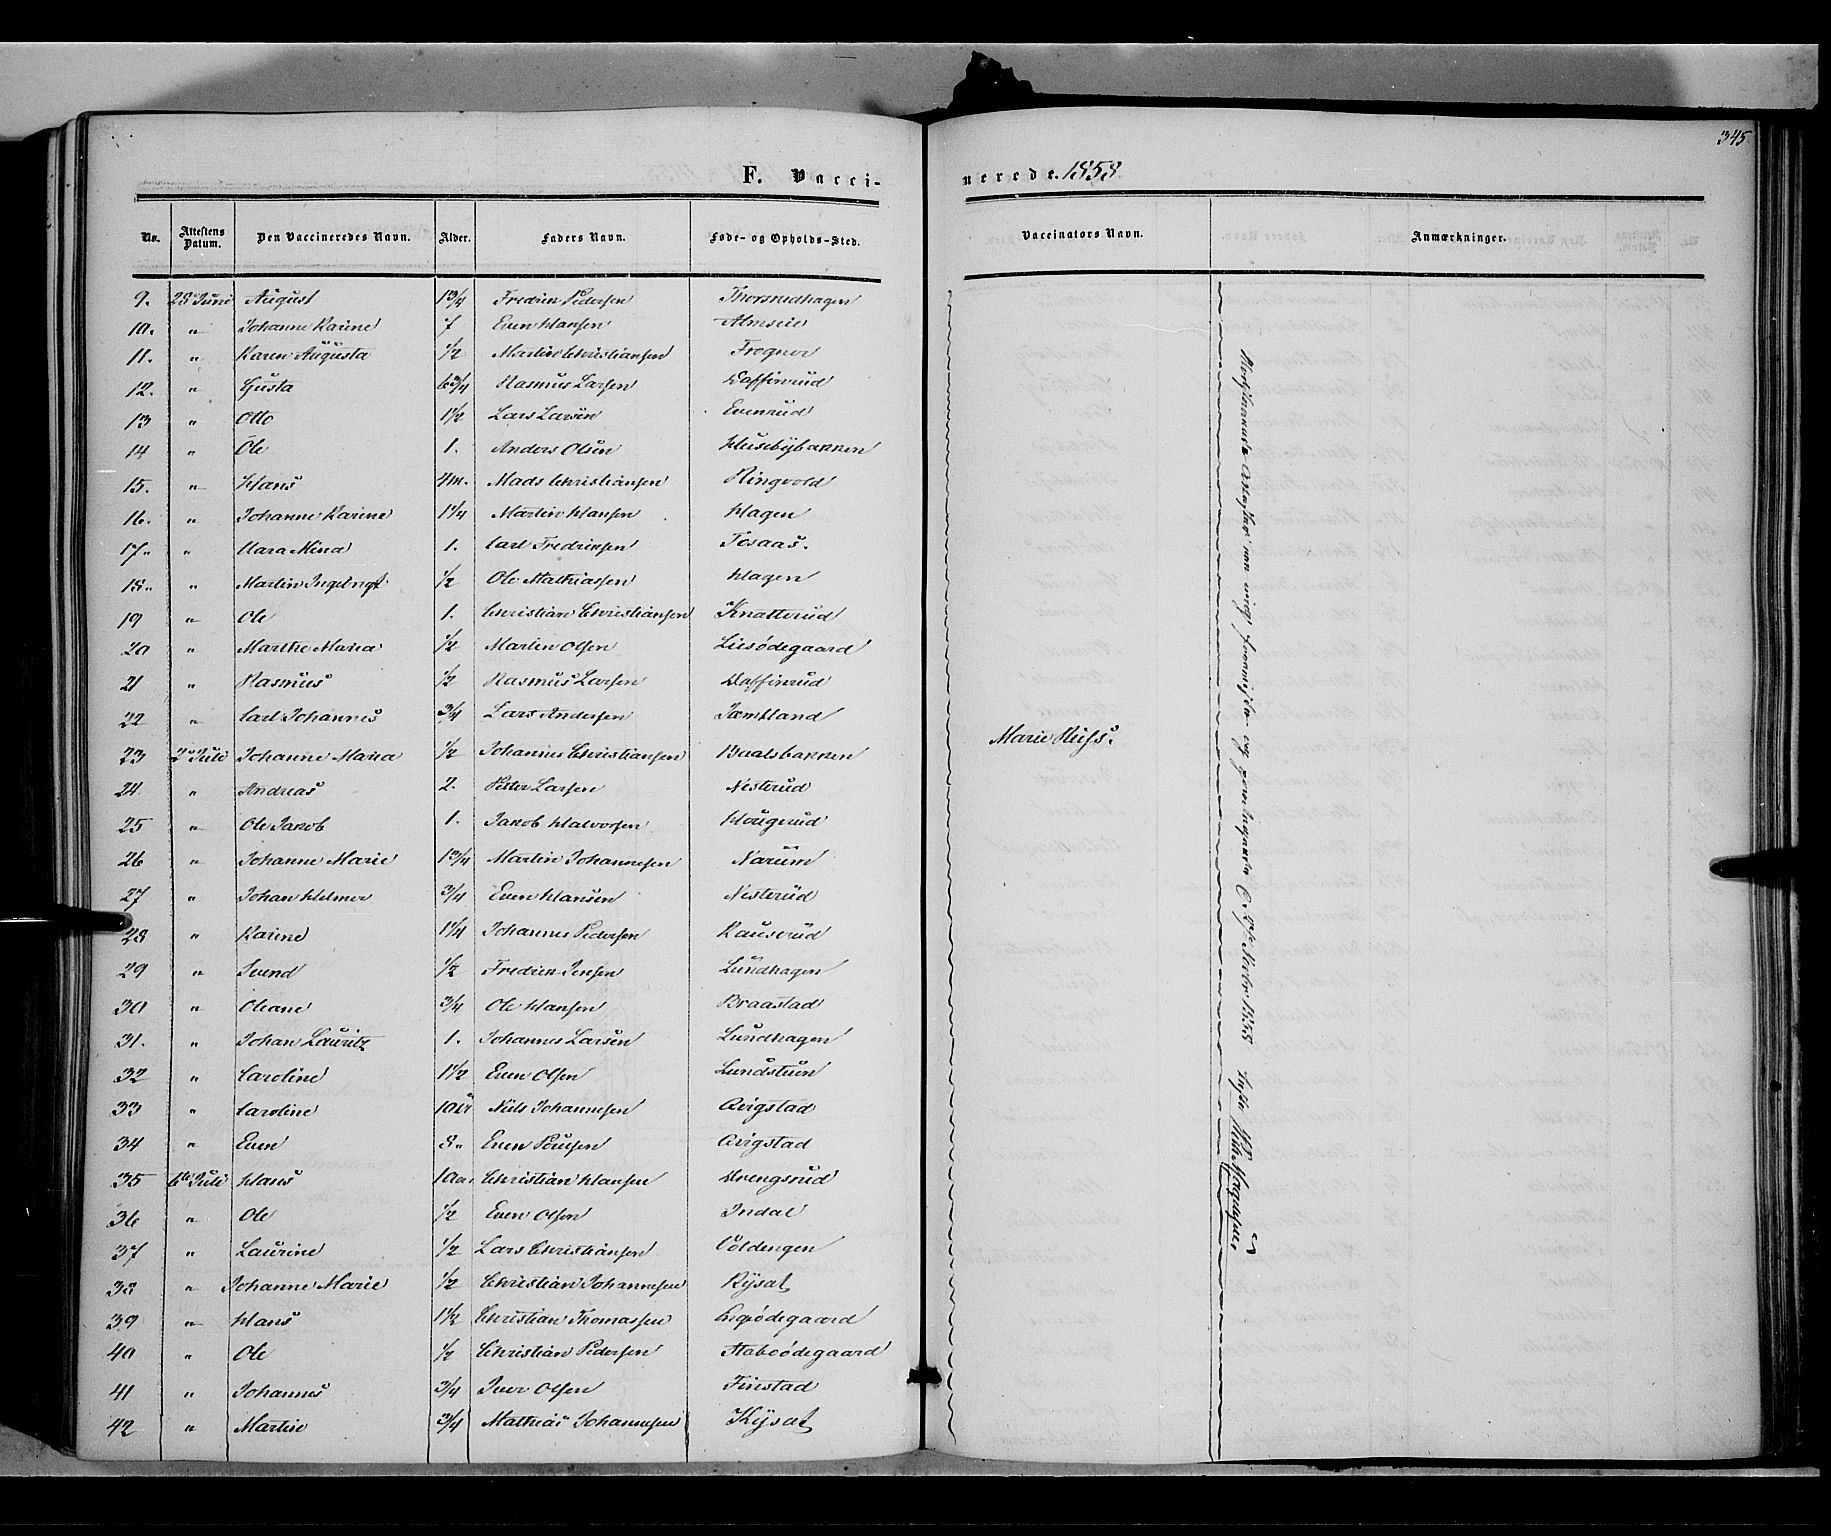 345
F. Vacci-
nerede. 1858
No. Attestens Datum. Den Vaccineredes Navn. Alder. Faders Navn. Føde- og Opholds-Sted. Vaccinators Navn. Anmærkninger.
9. 28 Juni August 1 3/4 Fredrik Pedersen Thorsrudhagen
10. " Johanne Karine 7 Even Hansen Almseie
11. " Karen Augusta 1/2 Martin Christiansen Fregner
12. " Gusta 6 3/4 Rasmus Larsen Daffinrud
13 " Otto 1 1/2 Lars Larsen Evenrud
14 " Ole 1. Anders Olsen Husebybakken
15. " Hans 4m. Mads Christiansen Ringvold
16. " Johanne Karine 1 1/4 Martin Hansen Hagen
17. " Mina 1. Carl Fredriksen Tosaas.
18. " Martin 1/2 Ole Mathiassen Hagen
19 " Ole 1. Christian Christiansen Knatterud
20 " Marthe Maria 1/2 Martin Olsen Liesødegaard
21 " Rasmus 1/2 Rasmus Larsen Daffinrud
22 " Carl Johannes 3/4 Lars Andersen Jæmtland
23 2 Juli Johanne Maria 1/2 Johannes Christiansen Baalsbakken Marie Huss.
24 " Andreas 2. Petter Larsen Nisterud
25 " Ole Jakob 1. Jakob Halvorsen Hougerud
26 " Johanne Marie 1 3/4 Martin Johannesen Narum
27 " Johan Helmer 3/4 Even Hansen Nisterud
28 " Karine 1 1/4 Johannes Pedersen Kauserud
29 " Svend 1/2 Fredrik Jensen Lundhagen
30 " Oleane 3/4 Ole Hansen Braastad
31. " Johan Lauritz 1. Johannes Larsen Lundhagen
32 " Caroline 1 1/2 Even Olsen Lundstuen
33 " Caroline 10 Niels Johannesen Qvigstad
34 " Even 8 " Even Poulsen Qvigstad
35 6te Juli Hans 10 Christian Hansen Drengsrud
36 " Ole 1/2 Even Olsen Indal
37 " Laurine 1/2 Lars Christiansen Voldengen
38 " Johanne Marie 1/2 Christian Johannesen Kysat
39 " Hans 1 1/2 Christian Thomassen
40 " Ole 1/2 Christian Pedersen Staboødegaard
41 " Johannes 3/4 Iver Olsen Finstad
42 " Martin 3/4 Mathias Johannesen Kysat